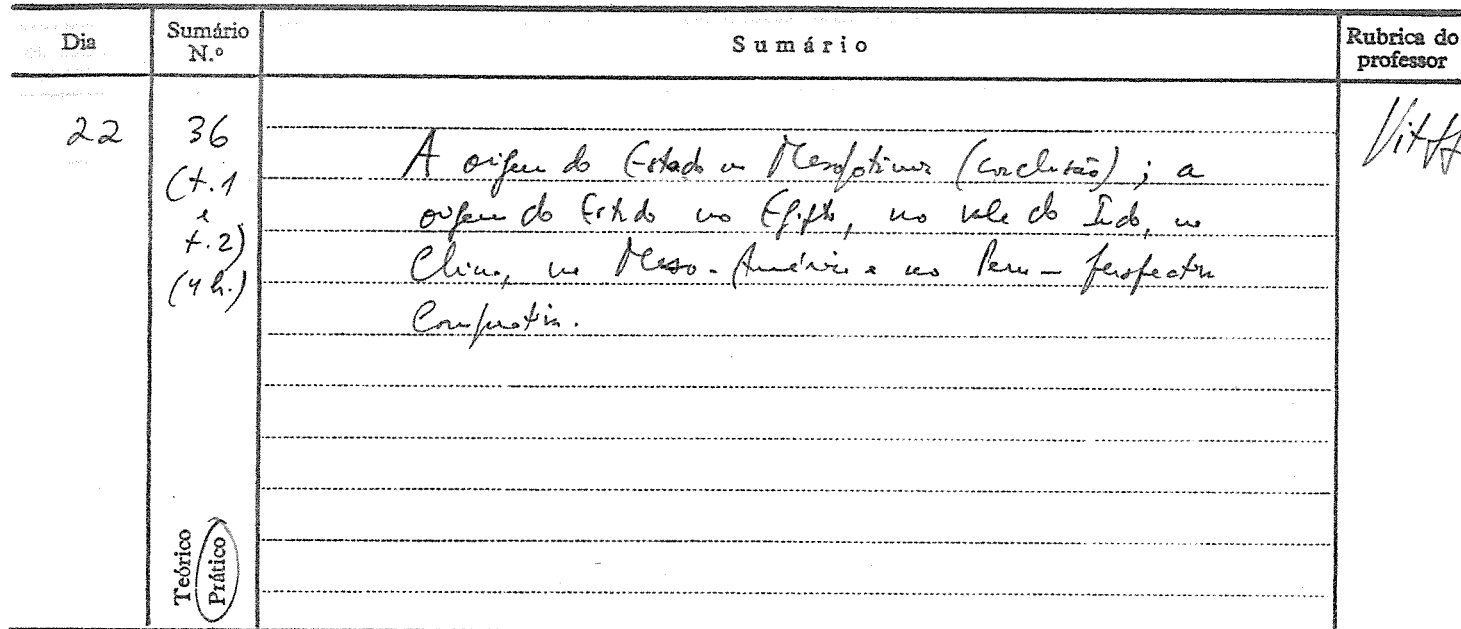 Dia
Sumário N.º
Sumário
Rubrica do professor
22
36
(t.1
e
t.2)
(4 h.)
A origem do Estado na Mesopotâmia (conclusão); a
origem do Estado no Egipto, no vale do Indo, na
China, na Meso-América e no Peru - perspectiva
Comparativa.
Teórico
Prático